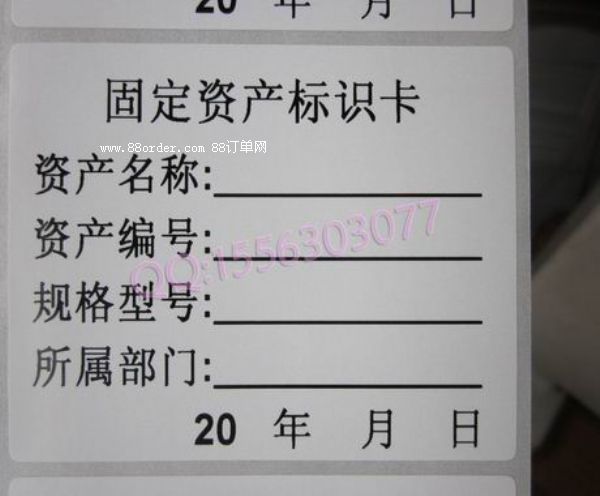 20 年 月 日
固定资产标识卡
www.88order.com 88订单网
资产名称:
资产编号:
QQ:1556303077
规格型号:
所属部门:
20 年 月 日